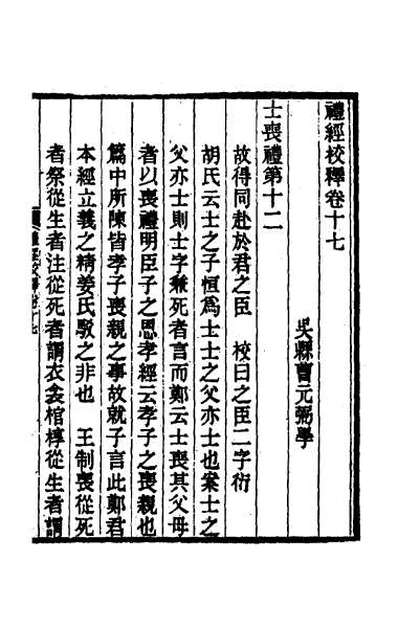 禮經校釋卷十七
吳縣曹元弼學
士喪禮第十二
故得同赴於君之臣　校曰之臣二字衍
胡氏云士之子恒爲士士之父亦士也案士之
父亦士則士字兼死者言而鄭云士喪其父母
者以喪禮明臣子之恩孝經云孝子之喪親也
篇中所陳皆孝子喪親之事故就子言此鄭君
本經立義之精姜氏駮之非也　王制喪從死
者祭從生者注從死者謂衣衾棺椁從生者謂